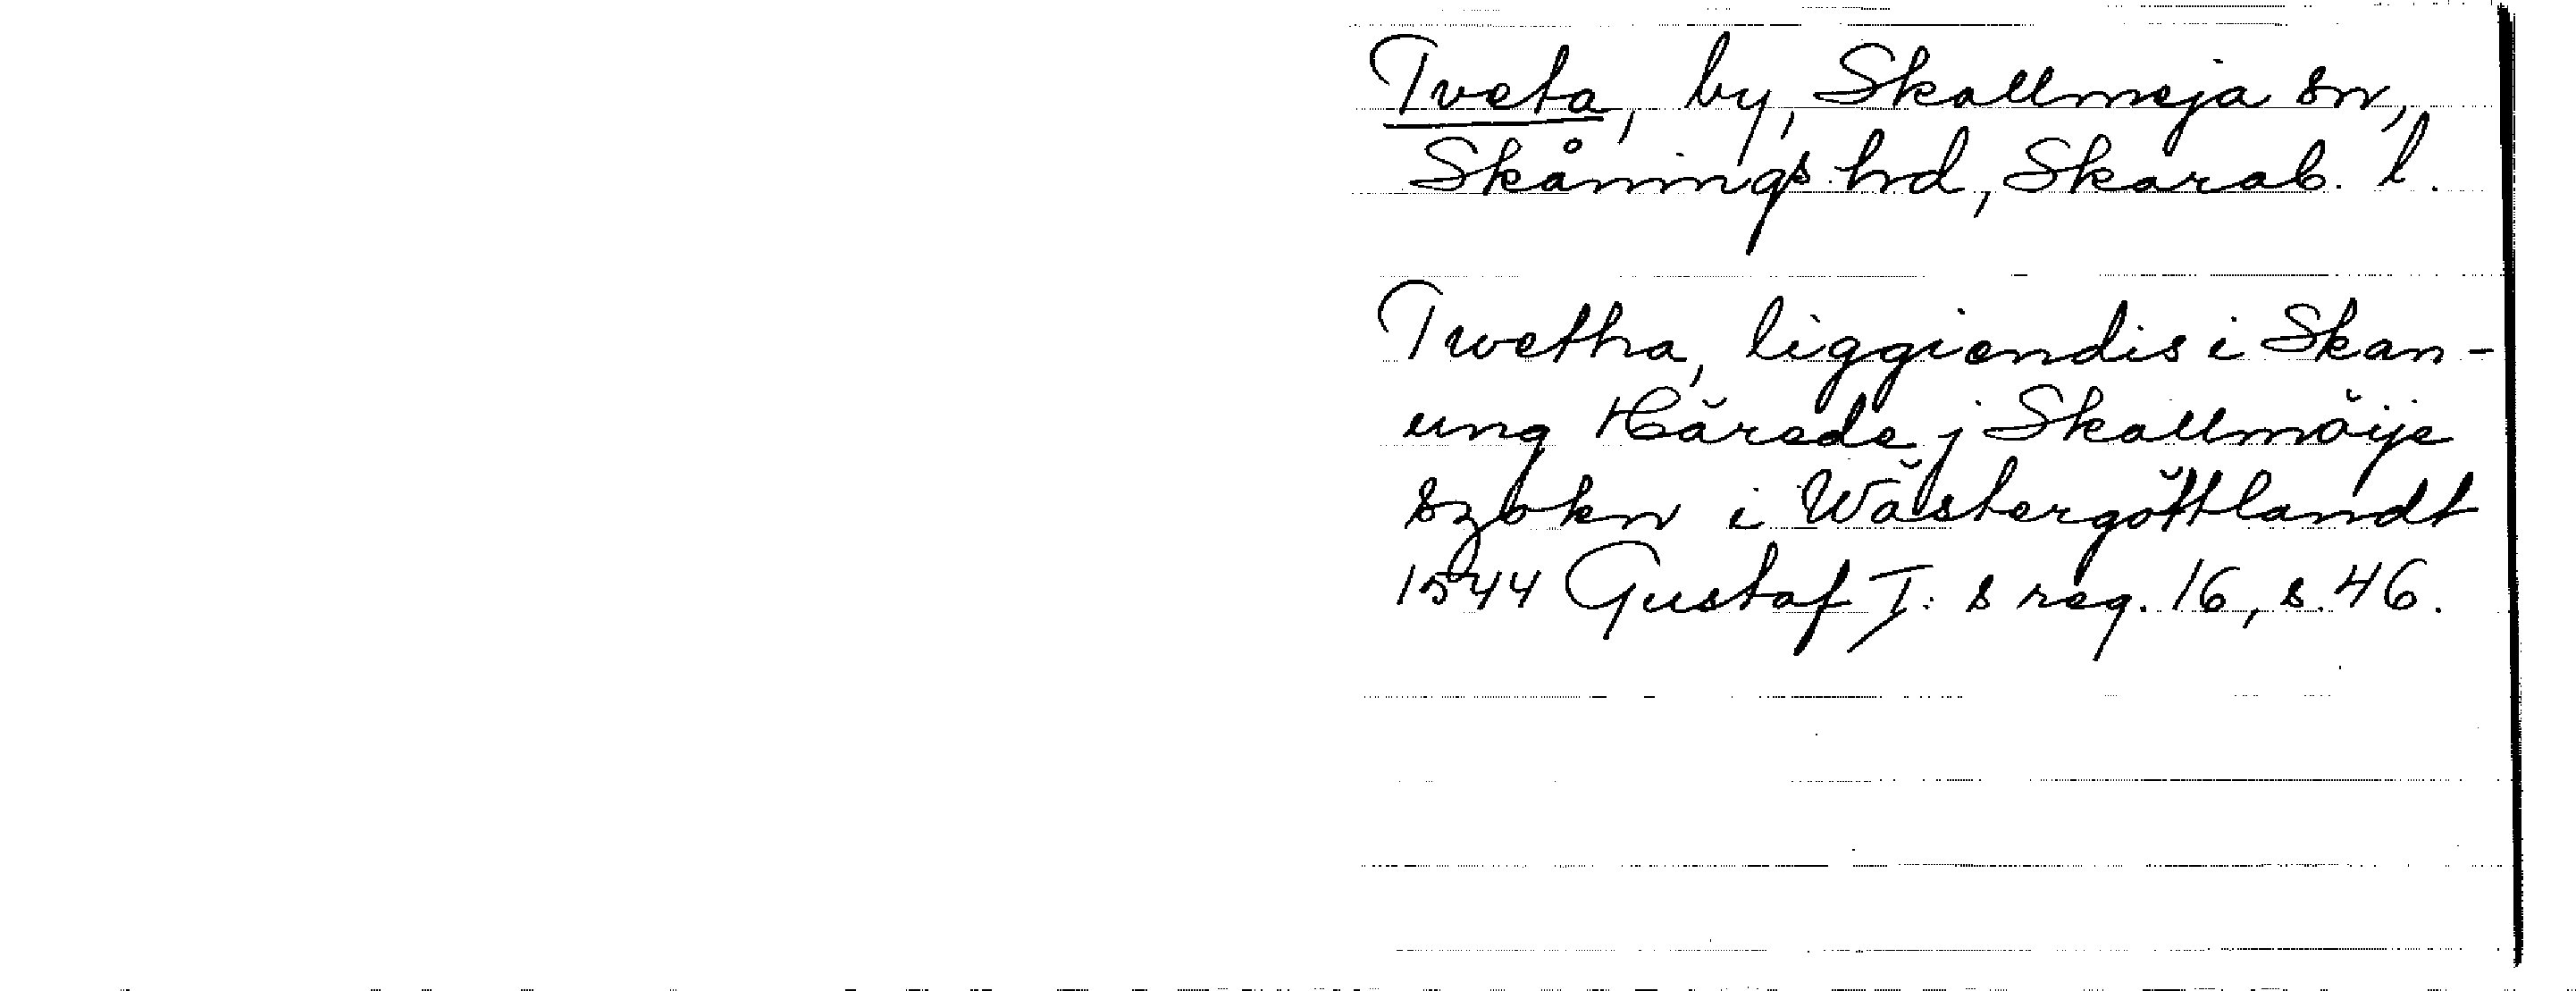 Tveta, by, Skallmeja sn,
Skånings hd, Skarab. l.
Twetha, liggiendis i Skan-
ung Härede j Skallmöije
szokn i Wästergöttlandt
1544 Gustaf I:s reg. 16, s. 46.